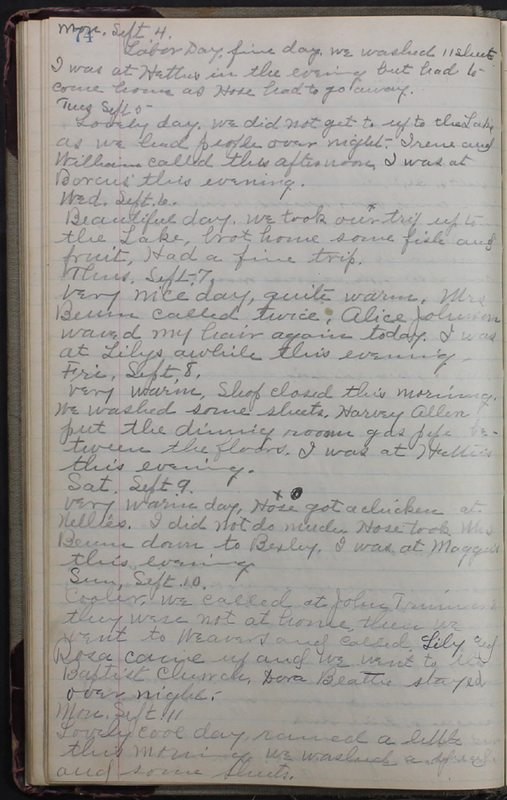 74
Mon. Sept 4.
Labor Day, fine day. we washed 11 sheets
I was at Hetties in the evening but had to
come home as Hose had to go away.
Tues Sept 5
Lovely day, we did not get to up to the Lake
as we had people over night. Irene and
William called this afternoon, I was at
Borcus this evening.
Wed. Sept. 6.
Beautiful day. we took our trip up to
the Lake, brot home some fish and
fruit, Had a fine trip.
Thus. Sept. 7.
very nice day, quite warm. Mrs
Beum called twice, Alice Johnson
waved my hair again today. I was
at Lilys awhile this evening.
Fri, Sept. 8.
very warm, Shop closed this morning.
We washed some sheets, Harvey Allen
put the dinning room gas pipe be-
tween the floors. I was at Hetties
this evening.
Sat. Sept 9.
very warm day, Hose got a chicken at
Nellies. I did not do much Hose took Mrs
Beum down to Bexley. I was at Maggies
this evening
Sun, Sept. 10.
Cooler. we called at John
they were not at home, then we
went to Weavers and called, Lily and
Rosa came up and we went to the
Baptist Church, Dora Beattie stayed
over night.
Mon. Sept. 11
Lovely cool day rained a little
this morning we washed
and some sheets.